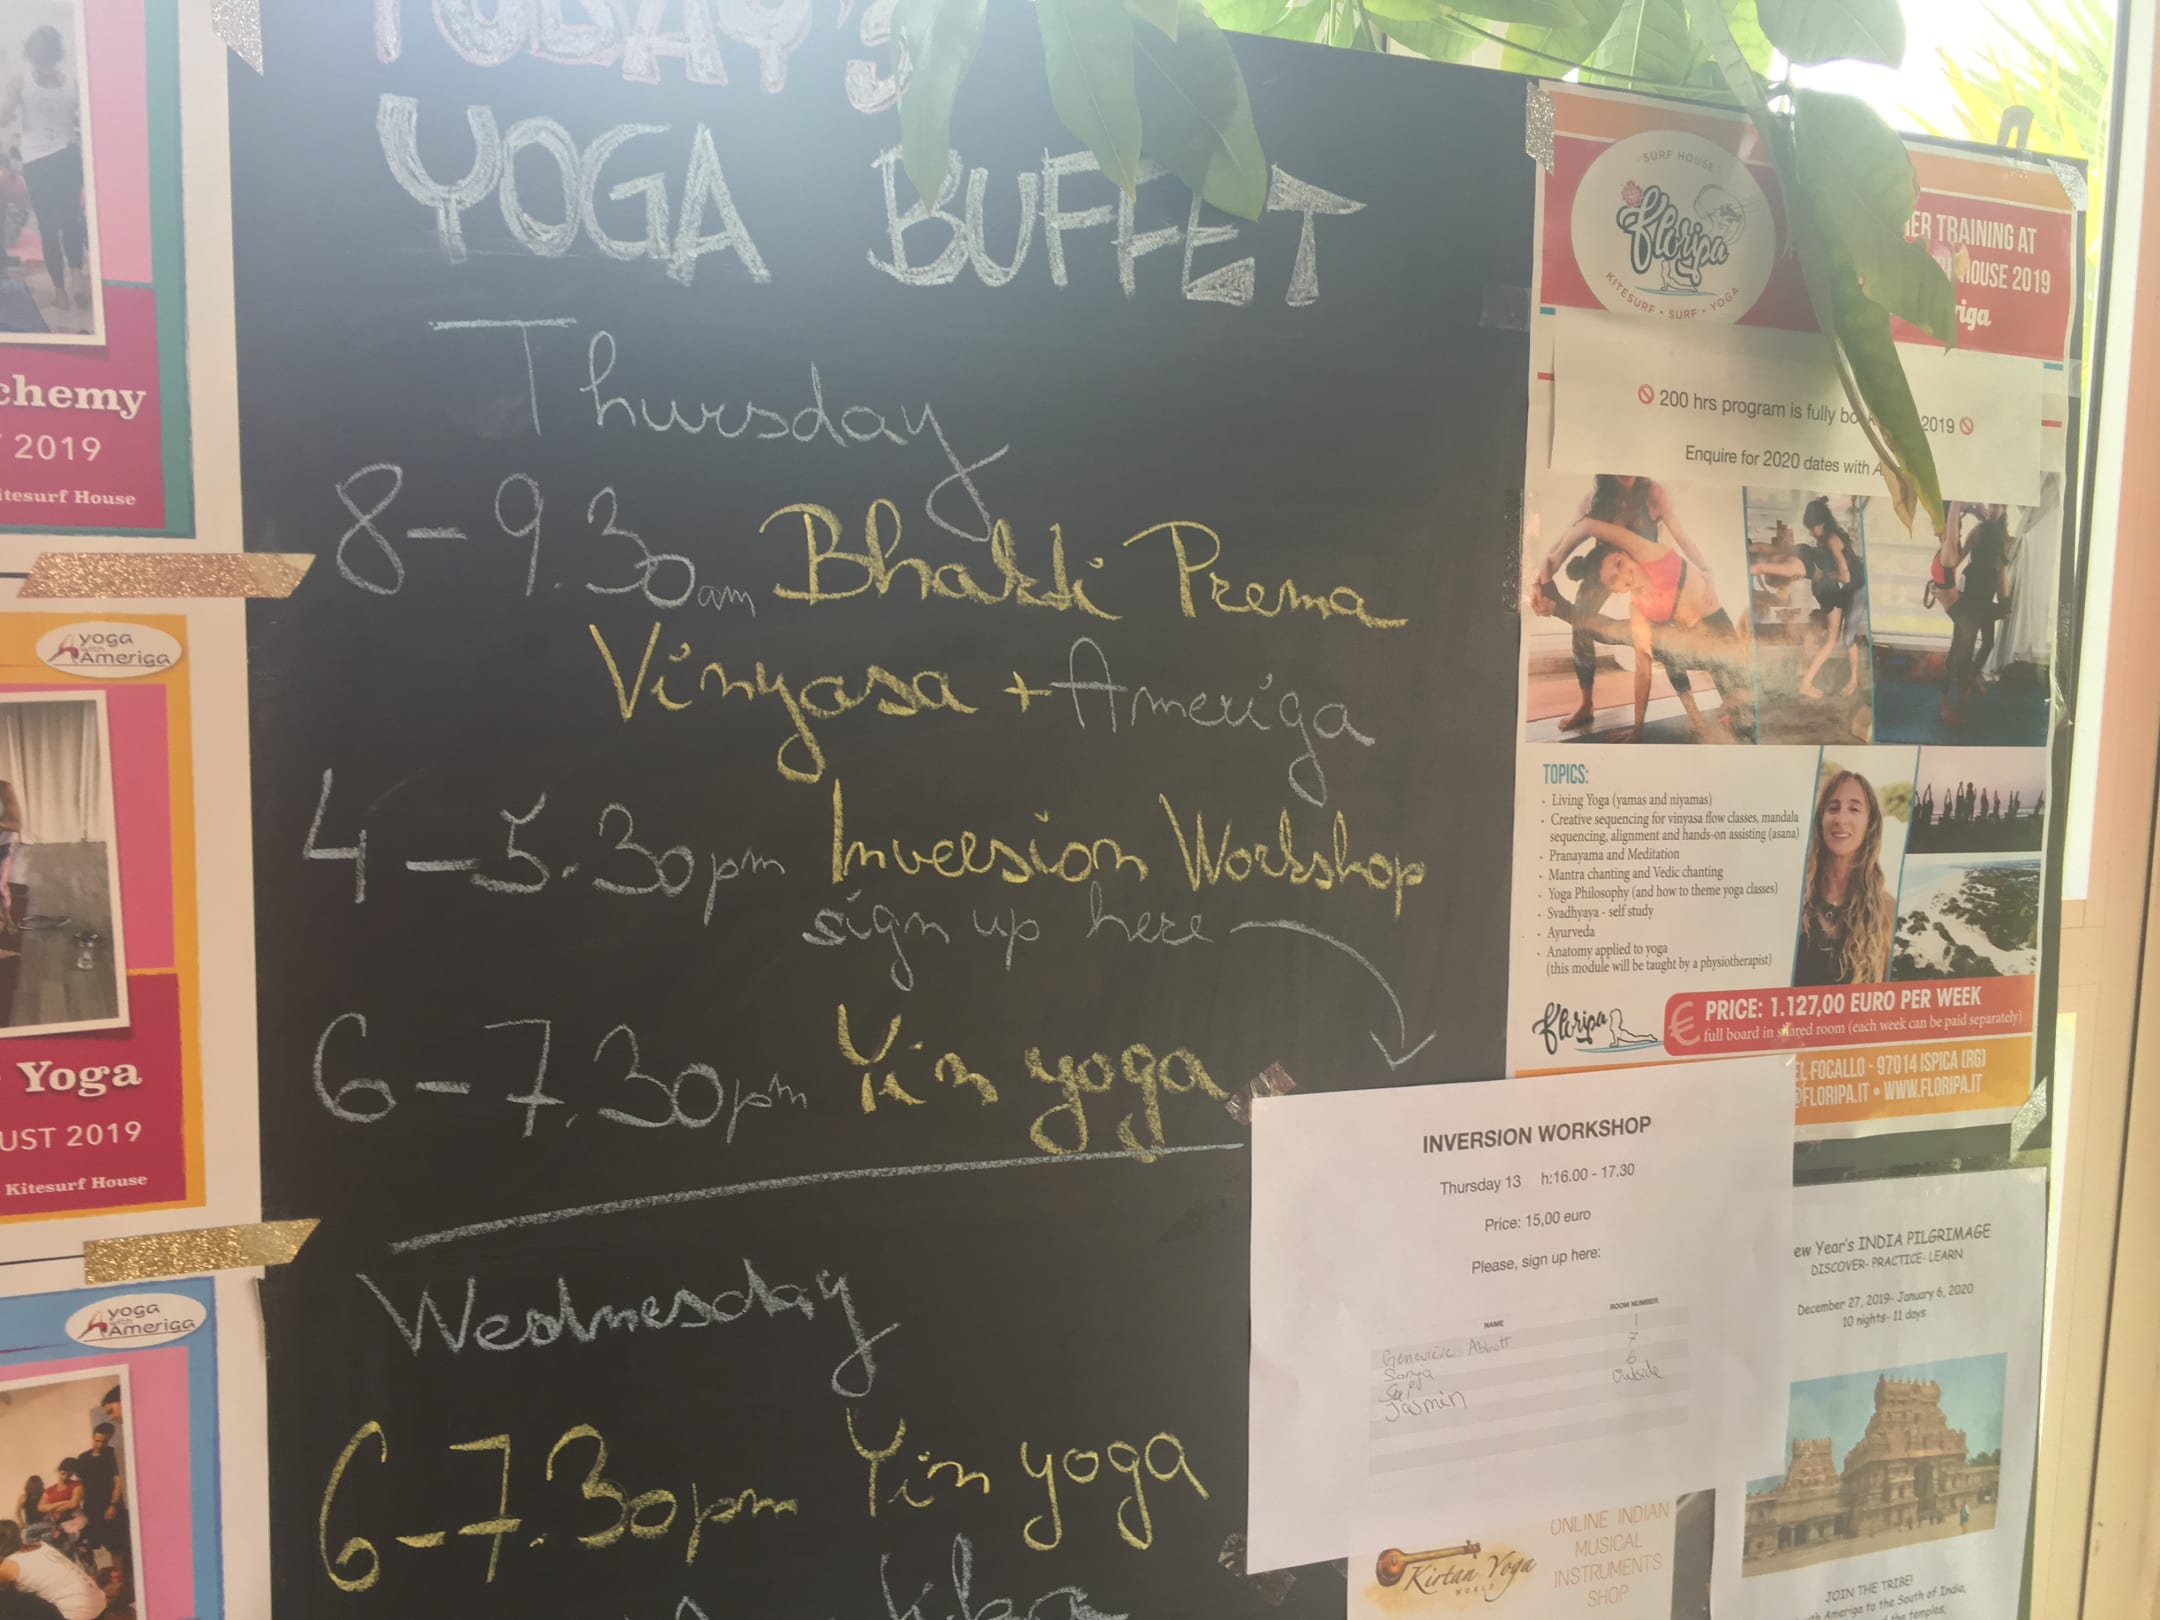 TODAY'S
YOGA BUFFET
Thursday
8-9.30am Bhakti Prema
Vinyasa + Ameriga
4-5.30pm Inversion Workshop
sign up here
6-7.30pm Yin yoga
Wednesday
6-7.30pm Yin yoga
chemy
2019
itesurf House
yoga
with
Ameriga
Yoga
UST 2019
Kitesurf House
yoga
with
Ameriga
SURF HOUSE
floripa
KITESURF • SURF • YOGA
ER TRAINING AT
HOUSE 2019
riga
200 hrs program is fully 2019
Enquire for 2020 dates with A
TOPICS:
· Living Yoga (yamas and niyamas)
· Creative sequencing for vinyasa flow classes, mandala
sequencing, alignment and hands-on assisting (asana)
· Pranayama and Meditation
· Mantra chanting and Vedic chanting
· Yoga Philosophy (and how to theme yoga classes)
· Svadhyaya - self study
· Ayurveda
· Anatomy applied to yoga
(this module will be taught by a physiotherapist)
floripa
€ PRICE: 1.127,00 EURO PER WEEK
full board in shared room (each week can be paid separately)
EL FOCALLO - 97014 ISPICA (RG)
@FLORIPA.IT • WWW.FLORIPA.IT
INVERSION WORKSHOP
Thursday 13 h:16.00 - 17.30
Price: 15,00 euro
Please, sign up here:
NAME ROOM NUMBER
Genevieve Abbott 1
Sonja 7
6
Jasmin Outside
ew Year's INDIA PILGRIMAGE
DISCOVER- PRACTICE- LEARN
December 27, 2019- January 6, 2020
10 nights- 11 days
JOIN THE TRIBE!
with Ameriga to the South of India,
the temples,
Kirtan Yoga
WORLD
ONLINE INDIAN
MUSICAL
INSTRUMENTS
SHOP